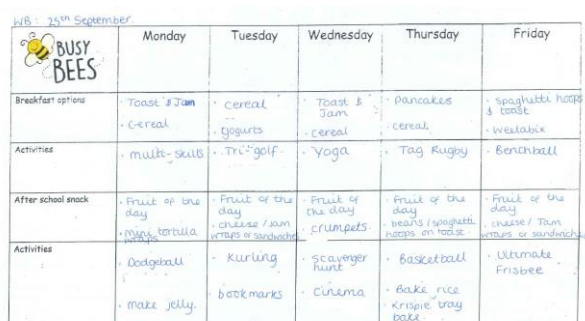 WB : 25th September.
BUSY
BEES
Monday
Tuesday
Wednesday
Thursday
Friday
Breakfast options
· Toast & Jam
· Cereal
· cereal
· yogurts
· Toast &
Jam
· cereal
· Pancakes
· cereal
· spaghetti hoops
& toast
· Weetabix
Activities
· multi-skills
· Tri-golf
· Yoga
· Tag Rugby
· Benchball
After school snack
· Fruit of the
day
· mini tortilla
wraps
· Fruit of the
day
· cheese / jam
wraps or sandwiches
· Fruit of
the day
· crumpets.
· Fruit of the
day
· beans / spaghetti
hoops on toast.
· Fruit of the
day
· cheese / Jam
wraps or sandwiches
Activities
· Dodgeball
· make jelly.
· Kurling
· bookmarks
· scavenger
hunt
· Cinema
· Basketball
· Bake rice
krispie tray
bake.
· Ultimate
Frisbee